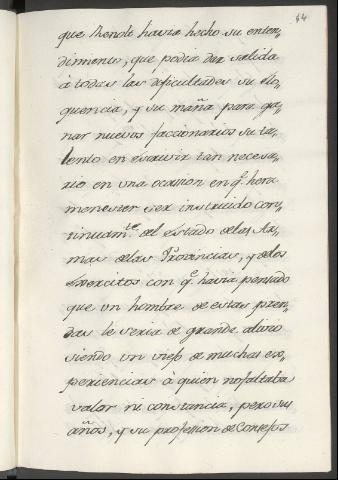 44
que Rendo havia hecho su enten-
dimiento, que podia dar salida
à todas las deficultades su elo-
quencia, y su maña para ga-
nar nuevos faccionarios su ta-
lento en escrivir tan necesa-
rio en una ocassion en q.e hera
menester ser instruido con-
tinuam.te del estado de las Ar-
mas de las Provincias, y de los
Exercitos con q.e havia pensado
que un hombre de estas pren-
das le seria de grande alivio
siendo un viejo de muchas ex-
periencias à quien no faltaba
valor ni constancia, pero sus
años, y su profession de Consejos